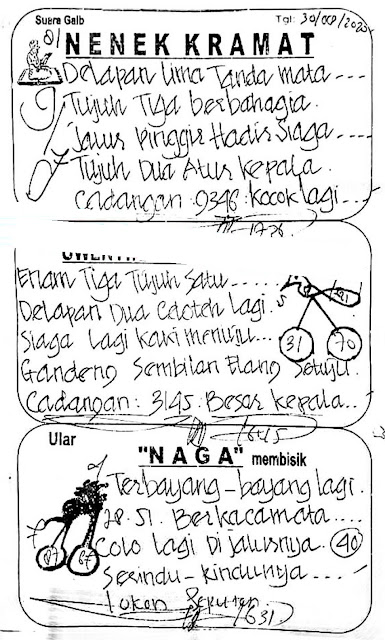 Suara Gaib
Tgl: 30/
81
NENEK KRAMAT
Delapan Lima Tanda mata ....
Tujuh Tiga berbahagia.
Jalur Pinggir Hadir Siaga ....
Tujuh Dua Atur Kepala.
Cadangan: 9346: Kocok lagi ...
1778.
Enam Tiga Tujuh Satu .....
5
Delapan Dua Celoteh Lagi.
Siaga Lagi Kaki menuju...
31 70
Gandeng Sembilan Elang Setuju.
Cadangan: 3145: Besar Kepala...
Ular
"NAGA" membisik
Terbayang-bayang lagi.
28.51. Berkacamata.....
Colo Lagi Di Jalurnya. 40
67
Serindu-rindunya ....
631.